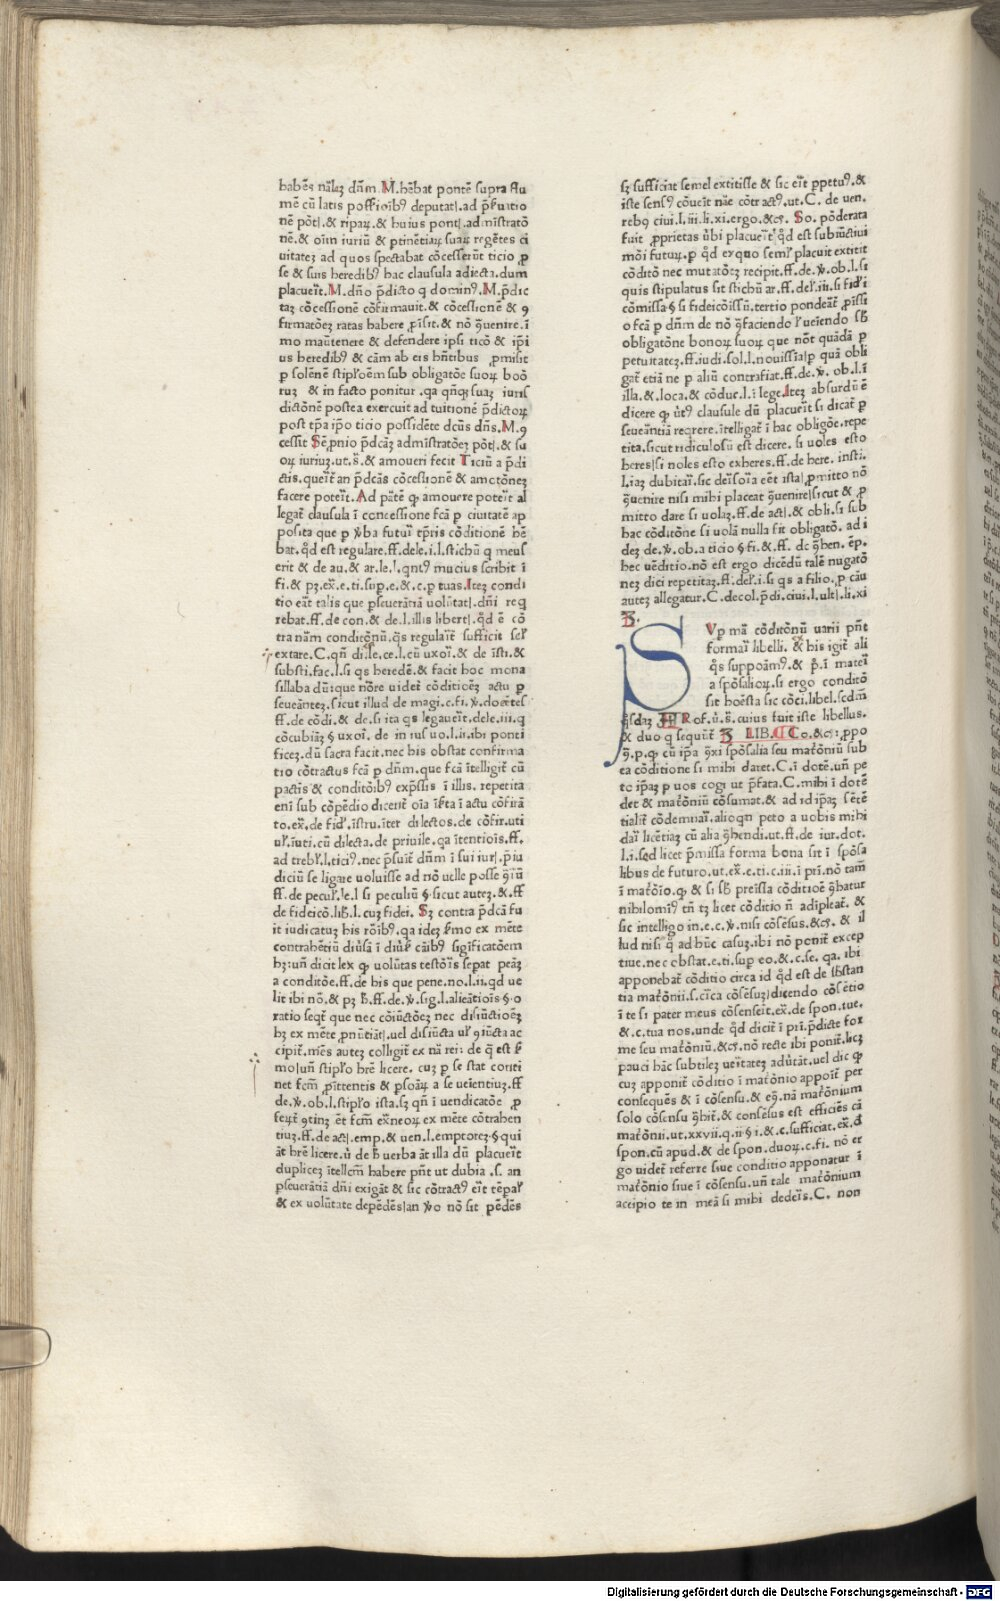 habēs nāleʒ dn̄m. M. hēbat pontē supra flu
mē cū latis possioībꝰ deputat. ad p̄
nē pōt. & ripaꝝ. & huius pont. ad mīstratō
nē. & oīm iuriū & ptinētiaꝝ suaꝝ regētes ci
uitateʒ ad quos spectabat cōcesserūt ticio ꝓ
se & suis heredibꝰ hac clausula adiecta. dum
placuerit. M. dn̄o p̄dicto q dominꝰ. M. p̄dic
taʒ cōcessionē cōfirmauit. & cōcessionē & ꝯ
firmatōeʒ ratas habere ꝓisit. & nō ꝯuenire. ī
mo mautenere & defendere ipsi ticō & ip̄i
us heredibꝰ & cām ab eis hn̄tibus ꝓmisit
p solēnē stipl'oēm sub obligatōe suoꝝ boō
ruʒ & in facto ponitur. qa suaʒ iuris
dictōnē postea exercuit ad tuitionē p̄dictoꝝ
post tp̄a ip̄o ticio possidēte dcūs dn̄s. M. ꝯ
cessit Sēpnio p̄dcāʒ admīstratōeʒ pōt. & su
oꝝ iuriuʒ. ut. s̄. & amoueri fecit Ticiū a p̄di
ctis. querit an p̄dcās cōcessionē & amotōneʒ
facere poterit. Ad pātē ꝙ amouere poterit al
legat clausula ī concessione fcā p ciuitatē ap
posita que p v̄ba futuri tp̄ris cōditionē hē
bat. qd est regulare. ff. dele. i. l. stichū q meus
erit & de au. & ar. le. l. qntꝰ mucius scribit ī
fi. & pʒ. ex̄. e. ti. sup. e. & .c. p tuas. Iteʒ condi
tio eāt talis que pseuerātiā uolūtat. dn̄i req
rebat. ff. de con. & de. l. illis libert. qd ē cō
tra nām conditōnū. qs regularit̄ sufficit sel'
extare. C. qn̄ di. le. ce. l. cū uxori. & de īsti. &
substi. fac. l. si qs heredē. & facit hoc mona
sillaba dū: que nōre uidet̄ cōditioēʒ actu p
seueānteʒ. sicut illud de magi. c. fi. v̄. docētes
ff. de cōdi. & de. si ita qs legauerit. dele. iii. q
cōcubiaʒ § uxori. de in ius uo. l. ii. ibi ponti
ficeʒ. dū sacra facit. nec his obstat confirma
tio cōtractus fcā p dn̄m. que fcā ītelligit̄ cū
pactis & conditōibꝰ exp̄ssis ī illis. repetita
eni sub cōpēdio dicerit̄ oīa ī actu cōfirā
to. ex̄. de fid'. īstru. īter dilectos. de cōfir. uti
ul'. īuti. cū dilecta. de priuile. qa ītentiois. ff.
ad trebl'. l. ticiꝰ. nec p̄suit̄ dn̄m ī sui iur. p̄iu
diciū se ligare uoluisse ad nō uelle posse ꝯiū
ff. de pecul'. le. l si peculiū § sicut auteʒ. & ff
de fideicō. lib. l. cuʒ fidei. Sʒ contra p̄dcā fu
it iudicatuʒ his rōibꝰ. qa ideʒ ex mēte
contrahētiū diūsā ī diūs̄ cāibꝰ sigīficatōem
hʒ: un̄ dicit lex ꝙ uolūtas testōis separat peāʒ
a conditōe. ff. de his que pene. no. l. ii. qd ue
lit ibi nō. & pʒ ff. de. v̄. sig. l. alieātiois § o
ratio seqt̄ que nec cōiūctōeʒ nec disiūctioēʒ
hʒ ex mēte ꝓnūtiāt. uel disiūcta ul' ꝯiūcta ac
cipit̄. mēs auteʒ colligit̄ ex nā rei: de q est
mo. un̄ stipl'o brē licere. cuʒ p se stat conti
net fcm̄ p̄ittentis & psoāꝝ a se uēientiuʒ. ff
de. v̄. ob. l. stipl'o ista. sʒ qn̄ ī uendicatōe ꝓ
fert̄ ꝯtineʒ ēt fcm̄ ex̄neoꝝ ex mēte cōtrahen
tiuʒ. ff. de act. emp. & uen. l. emptoreʒ § qui
āt brē licere. ū de uerba āt illa dū placuerit
dupliceʒ ītellcm̄ habere pn̄t ut dubia .s. an
pseuerātiā dn̄i exigāt & sic cōtractꝰ erit tēpal'
& ex uolūtate depēdēs. an v̄o nō sit pēdēs
sʒ sufficiat semel extitisse & sic erit ppetuꝰ. &
iste sensꝰ cōuerit nāe cōtractꝰ. ut. C. de uen.
rebꝰ ciui. l. iii. li. xi. ergo. &c̄. So. pōderata
fuit ꝓprietas ūbi placuerit qd est subiūctiui
mōi futuꝝ. p qd exquo seml' placuit extitit
cōditō nec mutatōeʒ recipit. ff. de. v̄. ob. l. si
quis stipulatus sit stichū ar. ff. del'. iii. si fid'i
cōmissa § si fideicōissū. tertio pondeāt̄ ꝓissi
o fcā p dn̄m de nō ꝯfaciendo l'ueiendo sb
obligatōne bonoꝝ suoꝝ que nōt quādā p
petuitateʒ. ff. iudi. sol. l. nouissīa. p quā obli
gat̄ etiā ne p aliū contrafiat. ff. de. v̄. ob. l. ī
illa. & loca. & cōduc. l. ī lege. Iteʒ absurdū ē
dicere ꝙ ūtꝰ clausule dū placuerit si dicat̄ p
seueāntiā reqrere. ītelligat̄ ī hac obligōe. repe
tita. sicut ridiculosū est dicere. si uoles esto
heres. si noles esto exheres. ff. de here. insti.
l. iaʒ dubitari. sic derisoria eēt ista. ꝓmitto nō
ꝯuenire nisi mihi placeat ꝯuenire. sicut & ꝓ
mitto dare si uolaʒ. ff. de act. & obli. si sub
hac cōditōne si uolā nulla fit obligatō. ad i
deʒ de. v̄. ob. a ticio § fi. & .ff. de ꝯhen. ēp.
hec uēditio. nō est ergo dicēdū talē nugatō
neʒ dici repetitaʒ. ff. del'. i. si qs a filio. p cāu
auteʒ allegatur. C. decol. p̄di. ciui. l. ult. li. xi
B.
SVp mā cōditōnū uarii pn̄t
formari libelli. & his igit̄ ali
qs suppoām. & p̄. ī mateī
a spōsalioꝝ. si ergo conditō
sit hoēsta sic cōci. libel. scdm̄
qsdaʒ Rof. ū. s̄. cuius fuit iste libellus.
& duo q sequūt̄ LIB. Co. &c̄. ꝓpo
ꝯ. p. ꝙ cū ip̄a ꝯxi spōsalia seu mat̄oniū sub
ea cōditione si mihi daret. C. ī dotē. un̄ pe
to ip̄aʒ p uos cogi ut p̄fata. C. mihi ī dotē
det & mat̄oniū cōsumat. & ad id ip̄aʒ sētē
tialit̄ cōdemnari. alioqn peto a uobis mihi
dari licētiaʒ cū alia ꝯhendi. ut. ff. de iur. dot.
l. i. sed licet p̄missa forma bona sit ī spōsa
libus de futuro. ut. ex̄. e. ti. c. iii. ī pri. nō tam̄
ī mat̄oīo. ꝙ & si sb preissa cōditioē ꝯhatur
nihilomiꝰ tn̄ tʒ licet cōditio n̄ adīpleat̄. &
sic intelligo in. e. c. v̄. nisi cōsēsus. &c̄. & il
lud nisi q ad hūc casuʒ. ibi nō ponit̄ excep
tiue. nec obstat. e. ti. sup eo. & .c. se. qa. ibi
apponebat̄ cōditio circa id qd est de sbstan
tia mat̄onii. s. circa cōsēsuʒ. dicendo cōsētio
ī te si pater meus cōsenserit. ex̄. de spon. tue.
& .c. tua nos. unde qd dicit̄ ī pri. p̄dicte for
me seu mat̄oniū. &c̄. nō recte ibi ponit̄. licʒ
pauci hāc subtileʒ ueritateʒ aduertāt. uel dic ꝙ
cuʒ apponit̄ cōditio ī mat̄onio apporit̄ per
consequēs & ī cōsensu. & eꝯ. nā mat̄onium
solo cōsensu ꝯhit̄. & consēsus est efficiēs cā
mat̄onii. ut. xxvii. q. ii § i. & .c. sufficiat. ex̄. d̄
spon. cū apud. & de spon. duoꝝ. c. fi. nō er
go uidet̄ referre siue conditio apponatur ī
mat̄onio siue ī cōsensu. un̄ tale mat̄onium
accipio te in meā si mihi dederis. C. non
Digitalisierung gefördert durch die Deutsche Forschungsgemeinschaft - DFG